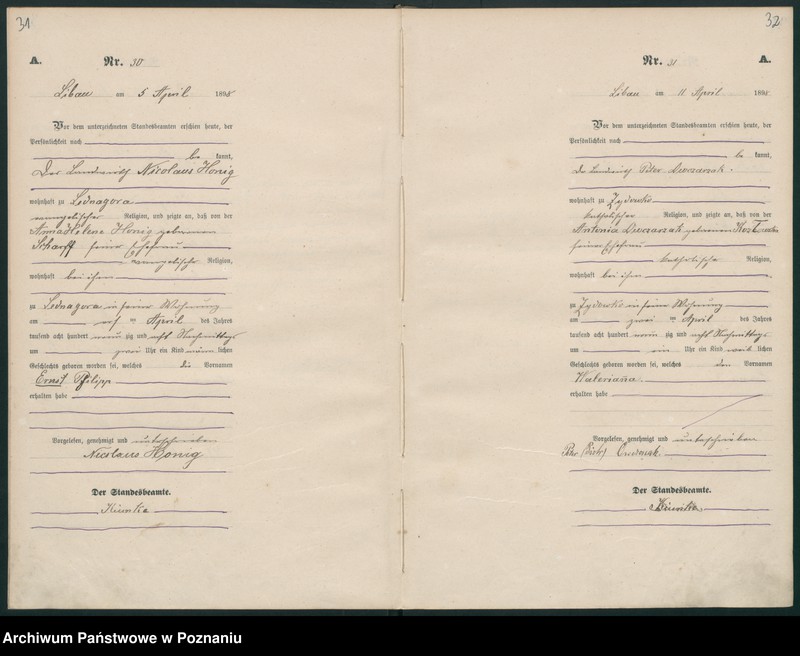 31
A. Nr. 30
Libau am 5 April 1898
Vor dem unterzeichneten Standesbeamten erschien heute, der
Persönlichkeit nach
be kannt,
Der Landwirth Nicolaus Honig
wohnhaft zu Lednagora
evangelischer Religion, und zeigte an, daß von der
Helene Honig geborenen
Scharff seiner Ehefrau
evangelischer Religion,
wohnhaft bei ihm
zu Lednagora in seiner Wohnung
am April des Jahres
tausend acht hundert neun zig und acht Nachmittags
um zwei Uhr ein Kind männ lichen
Geschlechts geboren worden sei, welches die Vornamen
Ernst Philipp
erhalten habe
Vorgelesen, genehmigt und unterschrieben
Nicolaus Honig
Der Standesbeamte.
32
Nr. 31 A.
Libau am 11 April 1898
Vor dem unterzeichneten Standesbeamten erschien heute, der
Persönlichkeit nach
be kannt,
Der Landwirth Peter
wohnhaft zu Zydowko
katholischer Religion, und zeigte an, daß von der
Antonia geborenen
seiner Ehefrau
katholische Religion,
wohnhaft bei ihm
zu Zydowko in seiner Wohnung
am zwei April des Jahres
tausend acht hundert neun zig und acht Nachmittags
um ein Uhr ein Kind weib lichen
Geschlechts geboren worden sei, welches den Vornamen
Waleriana
erhalten habe
Vorgelesen, genehmigt und unterschrieben
Der Standesbeamte.
Archiwum Państwowe w Poznaniu